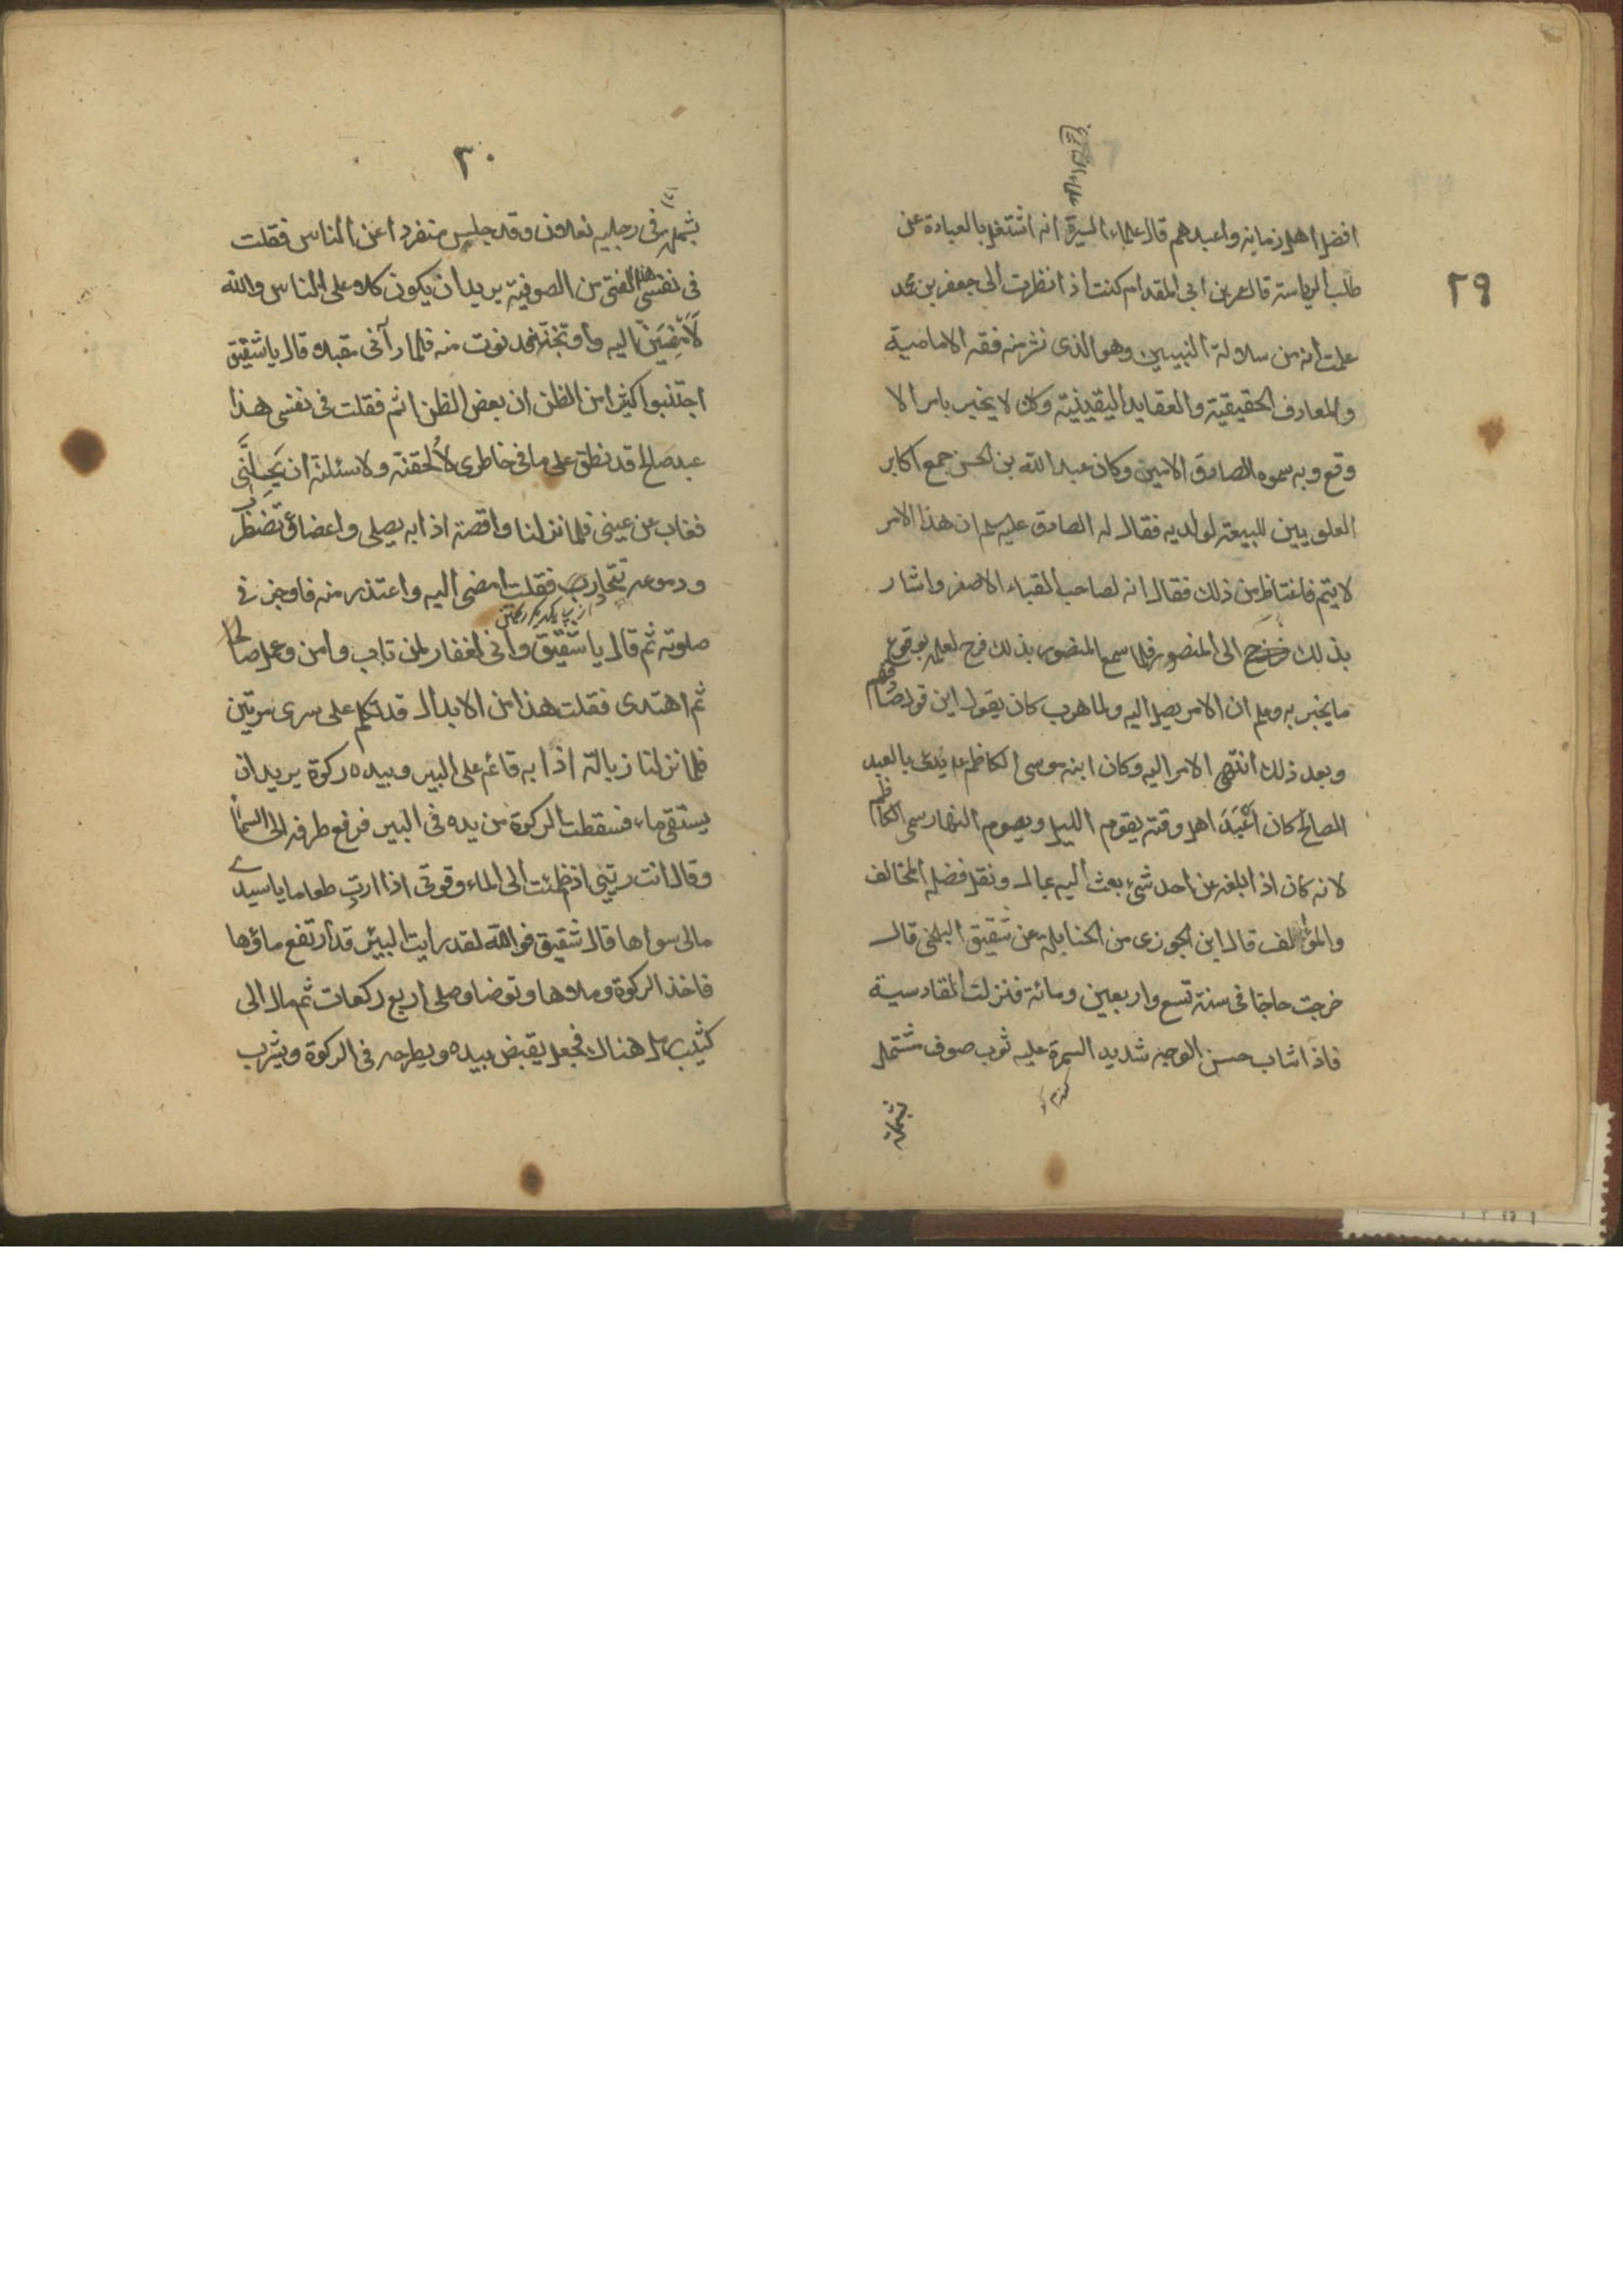 ٢٩
افضل اهل زمانه واعبدهم قال علماء السيرة انه اشتغل بالعبادة عن
طلب الرياسة قال عمر بن ابى المقدام كنت اذا نظرت الى جعفر بن محمد
علمت انه من سلالة النبيين وهو الذى نشر منه فقه الامامية
والمعارف الحقيقية والعقايد اليقينية وكان لا يخبر بامر الا
وقع وبه سموه الصادق الامين وكان عبد الله بن الحسن جمع اكابر
العلويين للبيعة لولديه فقال له الصادق عليه سلم ان هذا الامر
لا يتم فاغتاظ من ذلك فقال انه لصاحب القباء الاصفر واشار
بذلك الى المنصور فلما سمع المنصور بذلك فرح لعلمه بوقوع
ما يخبر به وعلم ان الامر يصل اليه ولما هرب كان يقول اين قول صادقهم
وبعد ذلك انتهى الامر اليه وكان ابنه موسى الكاظم ع يدعى بالعبد
الصالح كان اَعْبَدَ اهل وقته يقوم الليل ويصوم النهار سمى الكاظم
لانه كان اذا بلغه عن احد شىء بعث اليه بمال ونقل فضله المخالف
والمؤلف قال ابن الجوزى من الحنابلة عن شقيق البلخى قال
خرجت حاجا فى سنة تسع واربعين ومائة فنزلت القادسية
فاذا شاب حسن الوجه شديد السمرة عليه ثوب صوف مشتمل
بشملة
٣٠
بشملة فى رجليه نعلان وقد جلس منفردا عن الناس فقلت
فى نفسى هذا الفتى من الصوفية يريد ان يكون كلا على الناس والله
لَأَمْضِيَنَّ اليه واوبخنه فدنوت منه فلما رآنى مقبلا قال يا شقيق
اجتنبوا كثيرا من الظن ان بعض الظن اثم فقلت فى نفسى هذا
عبد صالح قد نطق على ما فى خاطرى لاُلحقنه ولاسئلنه ان يُحِلَّنى
فغاب عن عينى فلما نزلنا واقصة اذا به يصلى واعضاؤه تضطرب
ودموعه تتحادر فقلت امضى اليه واعتذر منه فاوجز فى
صلوته ثم قال يا شقيق وانى لغفار لمن تاب وامن وعمل صالحا
ثم اهتدى فقلت هذا من الابدال قد تكلم على سرى مرتين
فلما نزلنا زبالة اذا به قائم على البير وبيده ركوة يريد ان
يستقى ماء فسقطت الركوة من يده فى البير فرفع طرفه الى السماء
وقال انت ربى اذ ظمئت الى الماء وقوتى اذا اردت طعاما يا سيدى
مالى سواها قال شقيق فوالله لقد رايت البئر قد ارتفع ماؤها
فاخذ الركوة وملاها وتوضا وصلى اربع ركعات ثم مال الى
كثيب رمل هناك فجعل يقبض بيده ويطرحه فى الركوة ويشرب